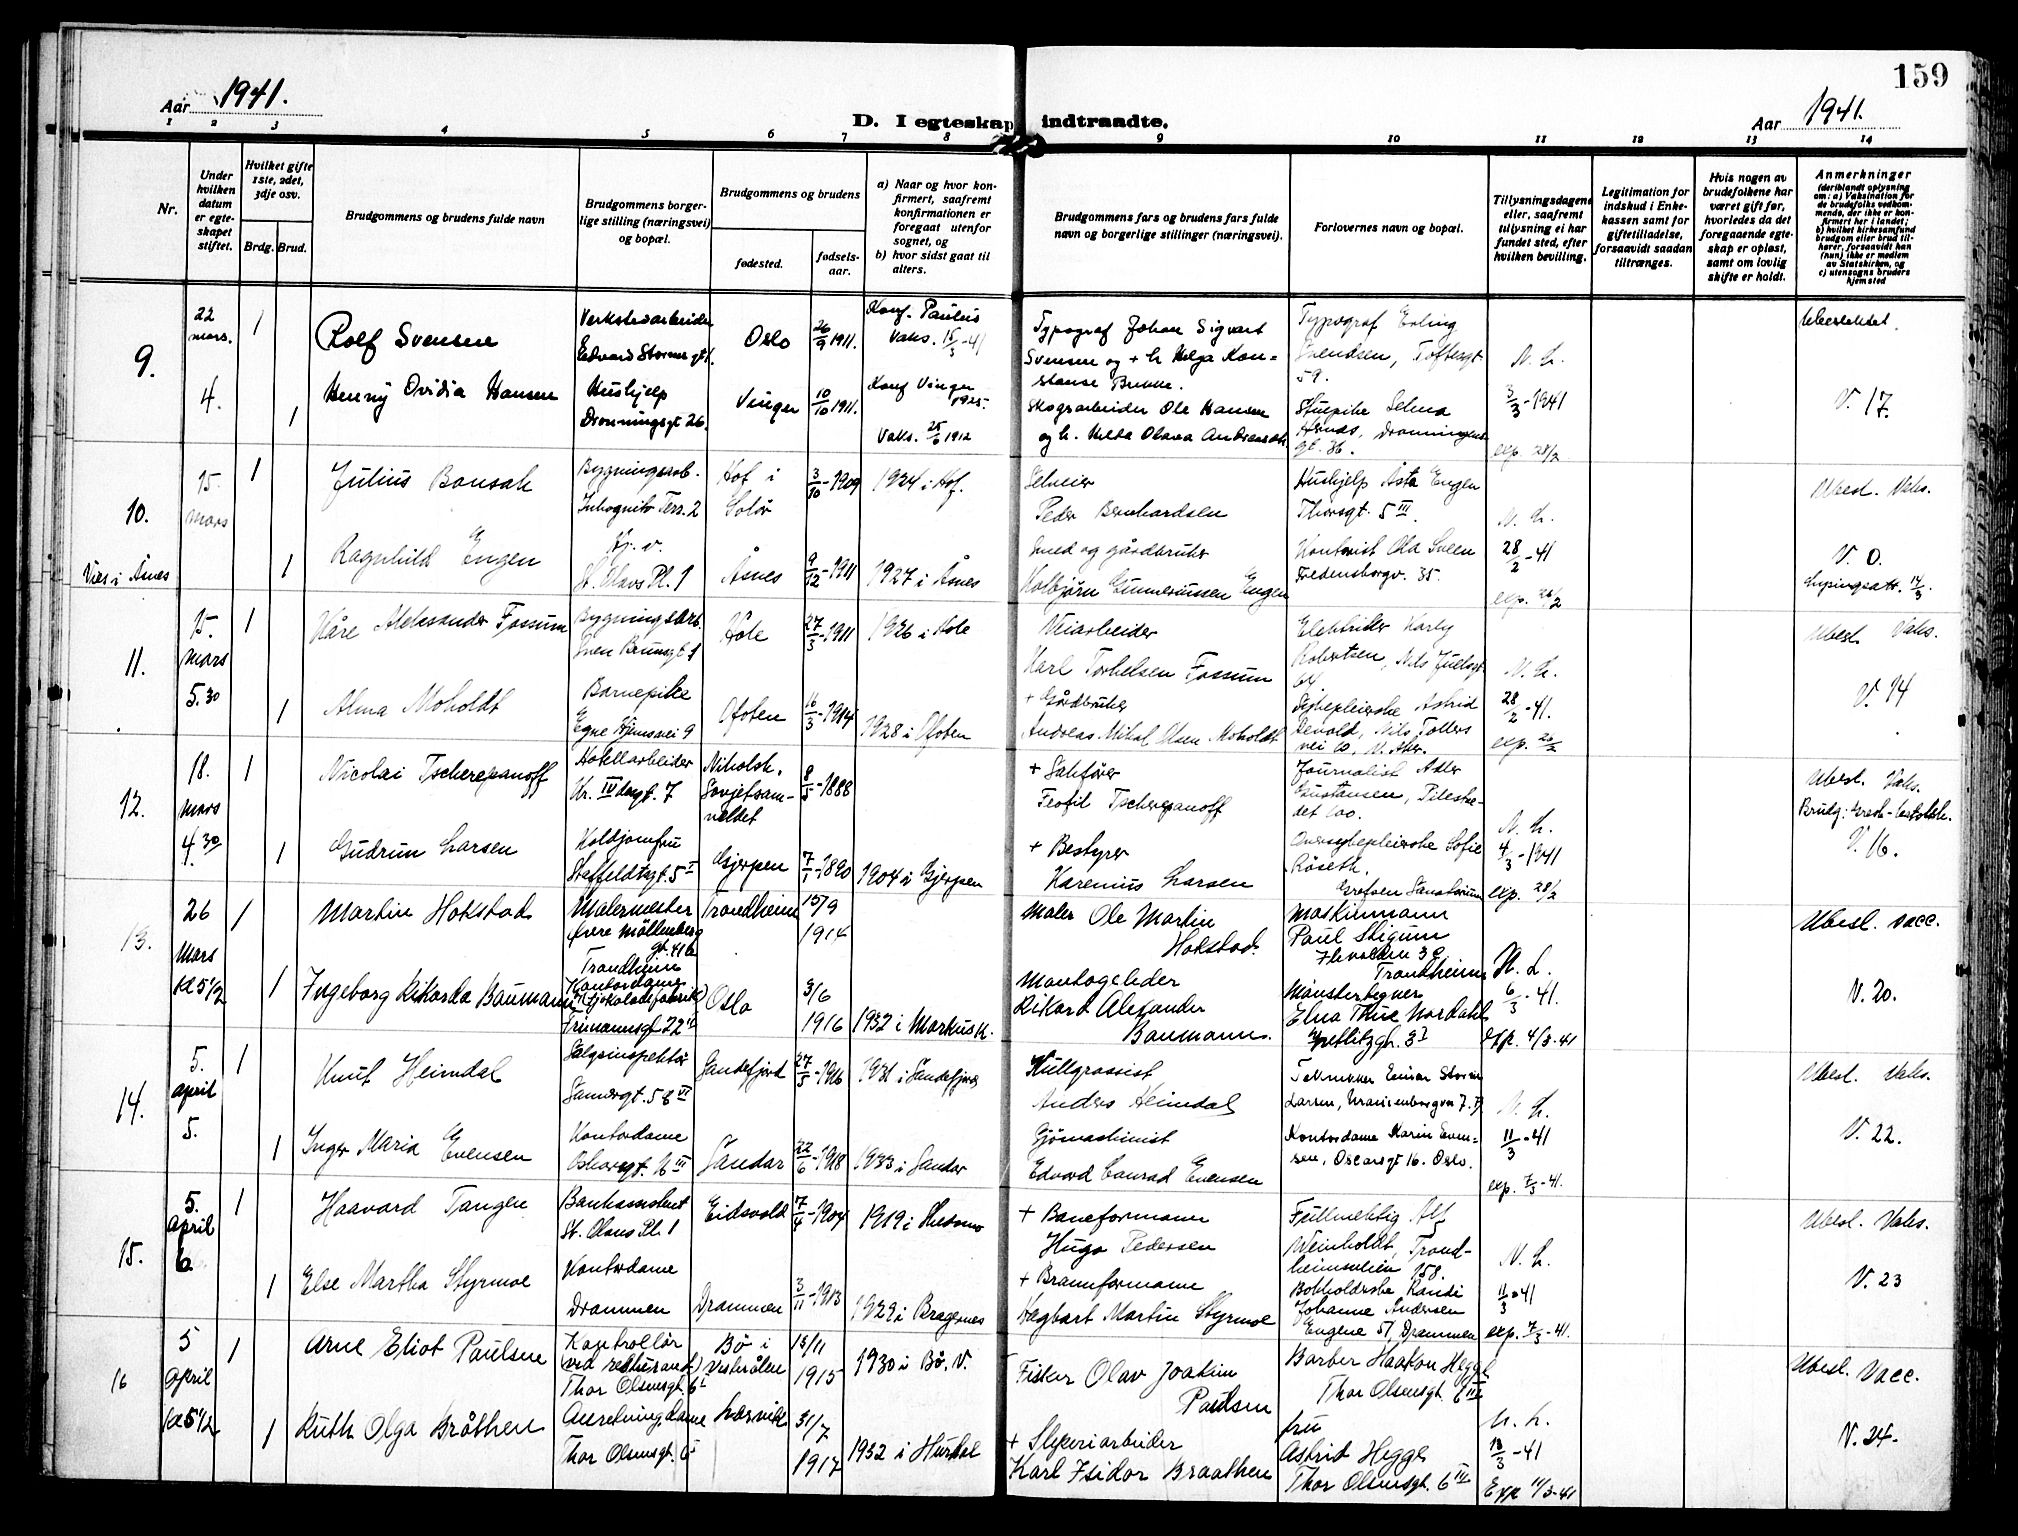 159
Aar 1941.
D. I egteskap indtraadte.
Aar 1941.
1 2 3 4 5 6 7 8 9 10 11 12 13 14
Nr.
Under hvilken datum er egteskapet stiftet.
Hvilket gifte 1ste, 2det, 3dje osv.
Brdg. Brud.
Brudgommens og brudens fulde navn
Brudgommens borgerlige stilling (næringsvei) og bopæl.
Brudgommens og brudens
fødested.
fødselsaar.
a) Naar og hvor konfirmert, saafremt konfirmationen er foregaat utenfor sognet, og
b) hvor sidst gaat til alters.
Brudgommens fars og brudens fars fulde navn og borgerlige stillinger (næringsvei).
Forlovernes navn og bopæl.
Tillysningsdagene eller, saafremt tillysning ei har fundet sted, efter hvilken bevilling.
Legitimation for indskud i Enkekassen samt for giftetilladelse, forsaavidt saadan tiltrænges.
Hvis nogen av brudefolkene har været gift før, hvorledes da det foregaaende egteskap er opløst, samt om lovlig skifte er holdt.
Anmerkninger
(deriblandt oplysning om: a) Vaksination for de brudefolks vedkommende, der ikke er konfirmert her i landet; b) hvilket kirkesamfund brudgom eller brud tilhører, forsaavidt han (hun) ikke er medlem av Statskirken, og c) utensogns bruders hjemsted
9.
22 mars.
4.
1
Rolf Svensen
Verkstedarbeider
Edvard Stormsgt
Oslo
26/9 1911.
Konf. Paulus
Vaks. 15/3-41
Typograf Johan Sigvart
Svensen og + h Helga Konstanse Brukke.
Typograf Erling
Svendsen, Toftesgt
59.
N. L.
3/3-1941
exp. 28/2
Ubeslektet.
V. 17.
1
Henny Ovidia Hansen
Hushjelp
Dronningsgt 26.
Vinger
10/10 1911.
Konf Vinger
1925.
Vaks. 25/6 1912
Skogsarbeider Ole Hansen
og h. Hilda Olava Andreasdtr
Stuepike Selma
Dronningensgt. 36.
10.
Vies i Åsnes
15. mars
1
Julius Bonsak
Bygningsarb.
Inkognito Terr. 2
Hof i Solør
3/10-1909
1924 i Hof.
Selveier
Peder Bernhardsen
Hushjelp Åsta Engen
Thorsgt. 5 III.
N. L.
28/2-41
exp. 26/2
Ubesl. Vaks.
V. 0.
1
Ragnhild Engen
Hj. v.
St. Olavs Pl. 1
Åsnes
9/12-1911
1927 i Åsnes
Smed og gårdbruker
Kolbjørn Gunneriussen Engen
Kontorist Ola Sveen
Fredensborgv. 35.
Lysingsatt. 14/3.
11.
15. mars
5.30
1
Kåre Aleksander Fossum
Bygningsarb
Sven Brunsgt 1
Hole
27/3-1911
1926 i Hole
Veiarbeider
Karl Torkelsen Fossum
Elektriker Harly
Robertsen, Nils Juelsgt
64
N. L.
28/2-41.
exp. 26/2
Ubesl. Vaks.
V. 14
1
Alma Moholdt
Barnepike
Egne Hjemsvei 9
Ofoten
16/3-1914
1928 i Ofoten
+ Gårdbruker
Andreas Mikal Olsen Moholdt
Sykepleierske Astrid
Devold, Nils Tollers
vei 10, V. Aker.
12.
18. mars
4.30
1
Nicolai Tscherepanoff
Hotellarbeider
Kr. IV desgt. 7
Nikolsk.
Sovjetsamveldet
8/5-1888
+ Sakfører
Teofil Tscherepanoff
Journalist Adler
Gustansen, Pilestredet 100.
N. L.
4/3-1941
exp. 28/2
Ubesl. Vaks.
V. 16.
1
Gudrun Larsen
Koldjomfru
Staffeldtsgt. 5 I
Gjerpen
7/1-1890
1904 i Gjerpen
+ Bestyrer
Karenius Larsen
Oversykepleierske Sofie
Røseth.
Grefsen Sanatorium
13.
26 Mars
kl 5 1/2
1
Martin Hokstad
Malermester
Øvre Møllenberg
gt. 41 b
Trondheim
Trondheim
15/9
1914
Maler Ole Martin
Hokstad.
Maskinmann
Paul Skigum
Ilevolden 3c
Trondheim
N. L.
6/3-41.
Exp. 4/3-41
Ubesl. vacc.
V. 20.
1
Ingeborg Rikorda Baumann
Kontordame
(Sjokoladefabrik)
Frimannsgt. 22 II
Oslo
3/6
1916
1932 i Markus K.
Montageleder
Rikard Alexander
Baumann.
Mønstertegner
Elna Thue Nordahl
14.
5. april
5.
1
Knut Heimdal
Salgsinspektør
Sannergt. 5 b VI
Sandefjord
27/5-1916
1931 i Sandefjord
Kullgrossist
Anders Heimdal
Tekniker Einar Storm
Larsen, Uranienborgvei 7. I
N. L.
11/3-41
exp. 7/3-41.
Ubesl. Vaks.
V. 22.
1
Inger Maria Evensen
Kontordame
Oskarsgt. 16 III
Sandar
22/6-1918
1933 i Sandar
Sjømaskinist
Edvard Conrad Evensen
Kontordame Karin Evensen, Oscarsgt 16. Oslo.
15.
5. april
6
1
Haavard Tangen
Bankassistent
St. Olavs Pl. 1
Eidsvold
7/4-1904
1919 i Hedemo
+ Baneformann
Hugo Pedersen
Fullmektig Alf
Weinholdt, Trondheimsveien 158.
N. L.
11/3-41
exp. 7/3-41.
Ubesl. Vaks.
V. 23
1
Else Martha Styrmoe
Kontordame
Drammen
Drammen
3/11-1913
1929 i Bragernes
+ Brannformann
Hegbart Martin Styrmoe
Bokholderske Randi
Johanne Andersen
Engene 51, Drammen
16
5 april
kl 5 1/2
1
Arne Eliot Paulsen
Kontrollør
(ved restaurant)
Thor Olsensgt. 6 I
Bø i Vesterålen
15/11
1915
1930 i Bø. V.
Fisker Olav Joakim
Paulsen
Barber Haakon Hegge
Thor Olsensgt. 6 III
N. L.
18/3-41
Exp 11/3-41
Ubesl. Vacc.
V. 24.
1
Ruth Olga Bråthen
Anretningsdame
Thor Olsensgt. 6 I
Larvik
31/7
1917
1932 i Hurdal
+ Sliperiarbeider
Karl Isidor Braathen
fru
Astrid Hegge
Thor Olsensgt. 6 III